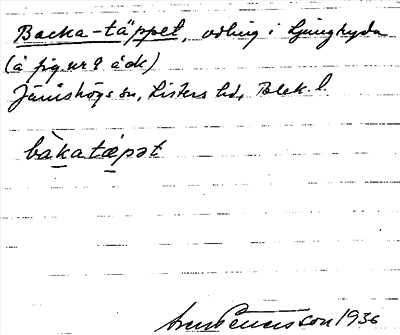 Backa-täppet, odling i Ljungryda
(å fig. nr 9 å dk)
Jämshögs sn, Listers hd, Blek. l.
bàkatæpət
Pettersson 1936